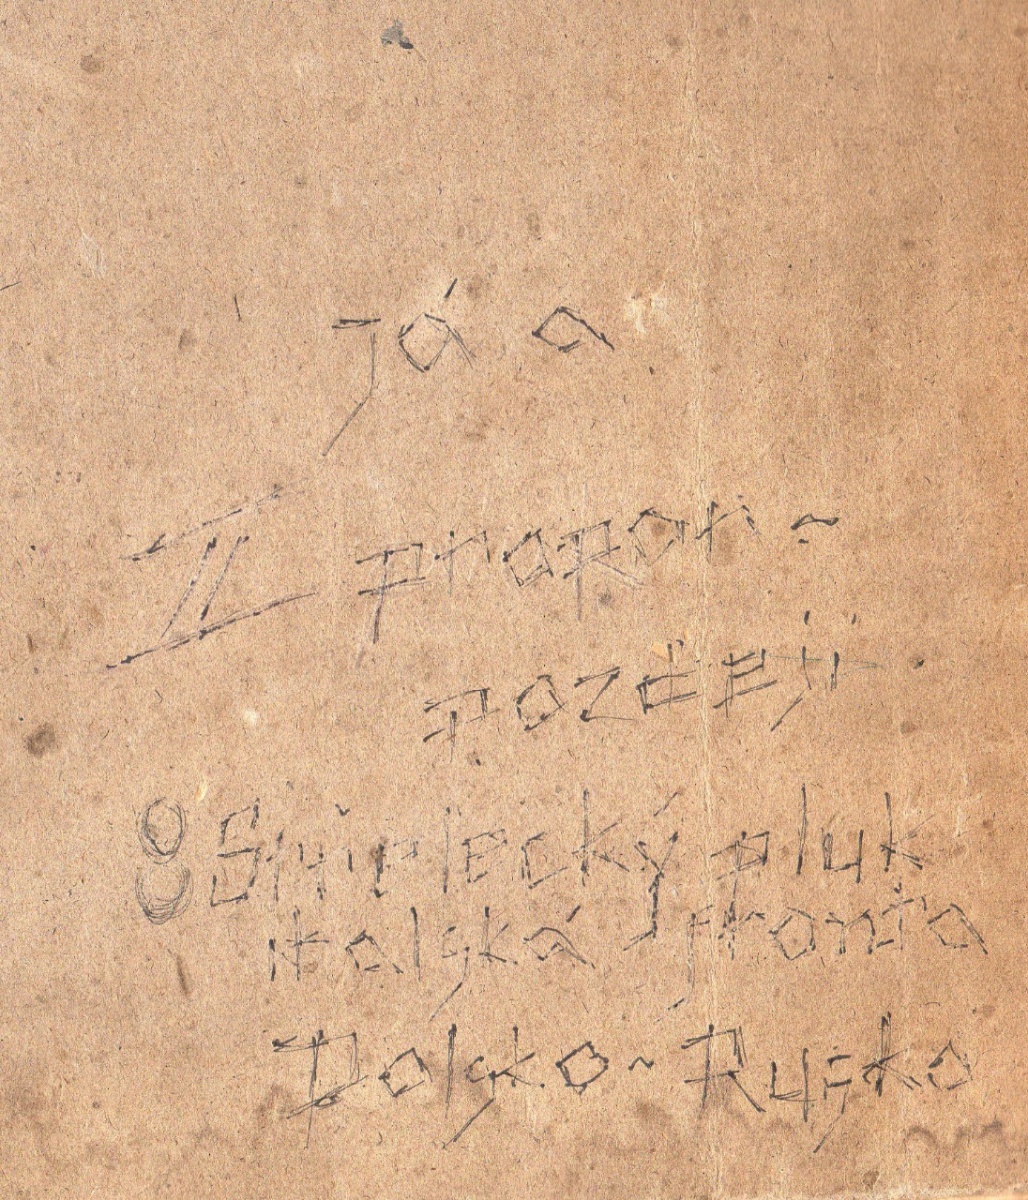 já a
II prapor ~
pozdĕji.
8 Střelecký pluk
italská fronta
Polsko ~ Rusko